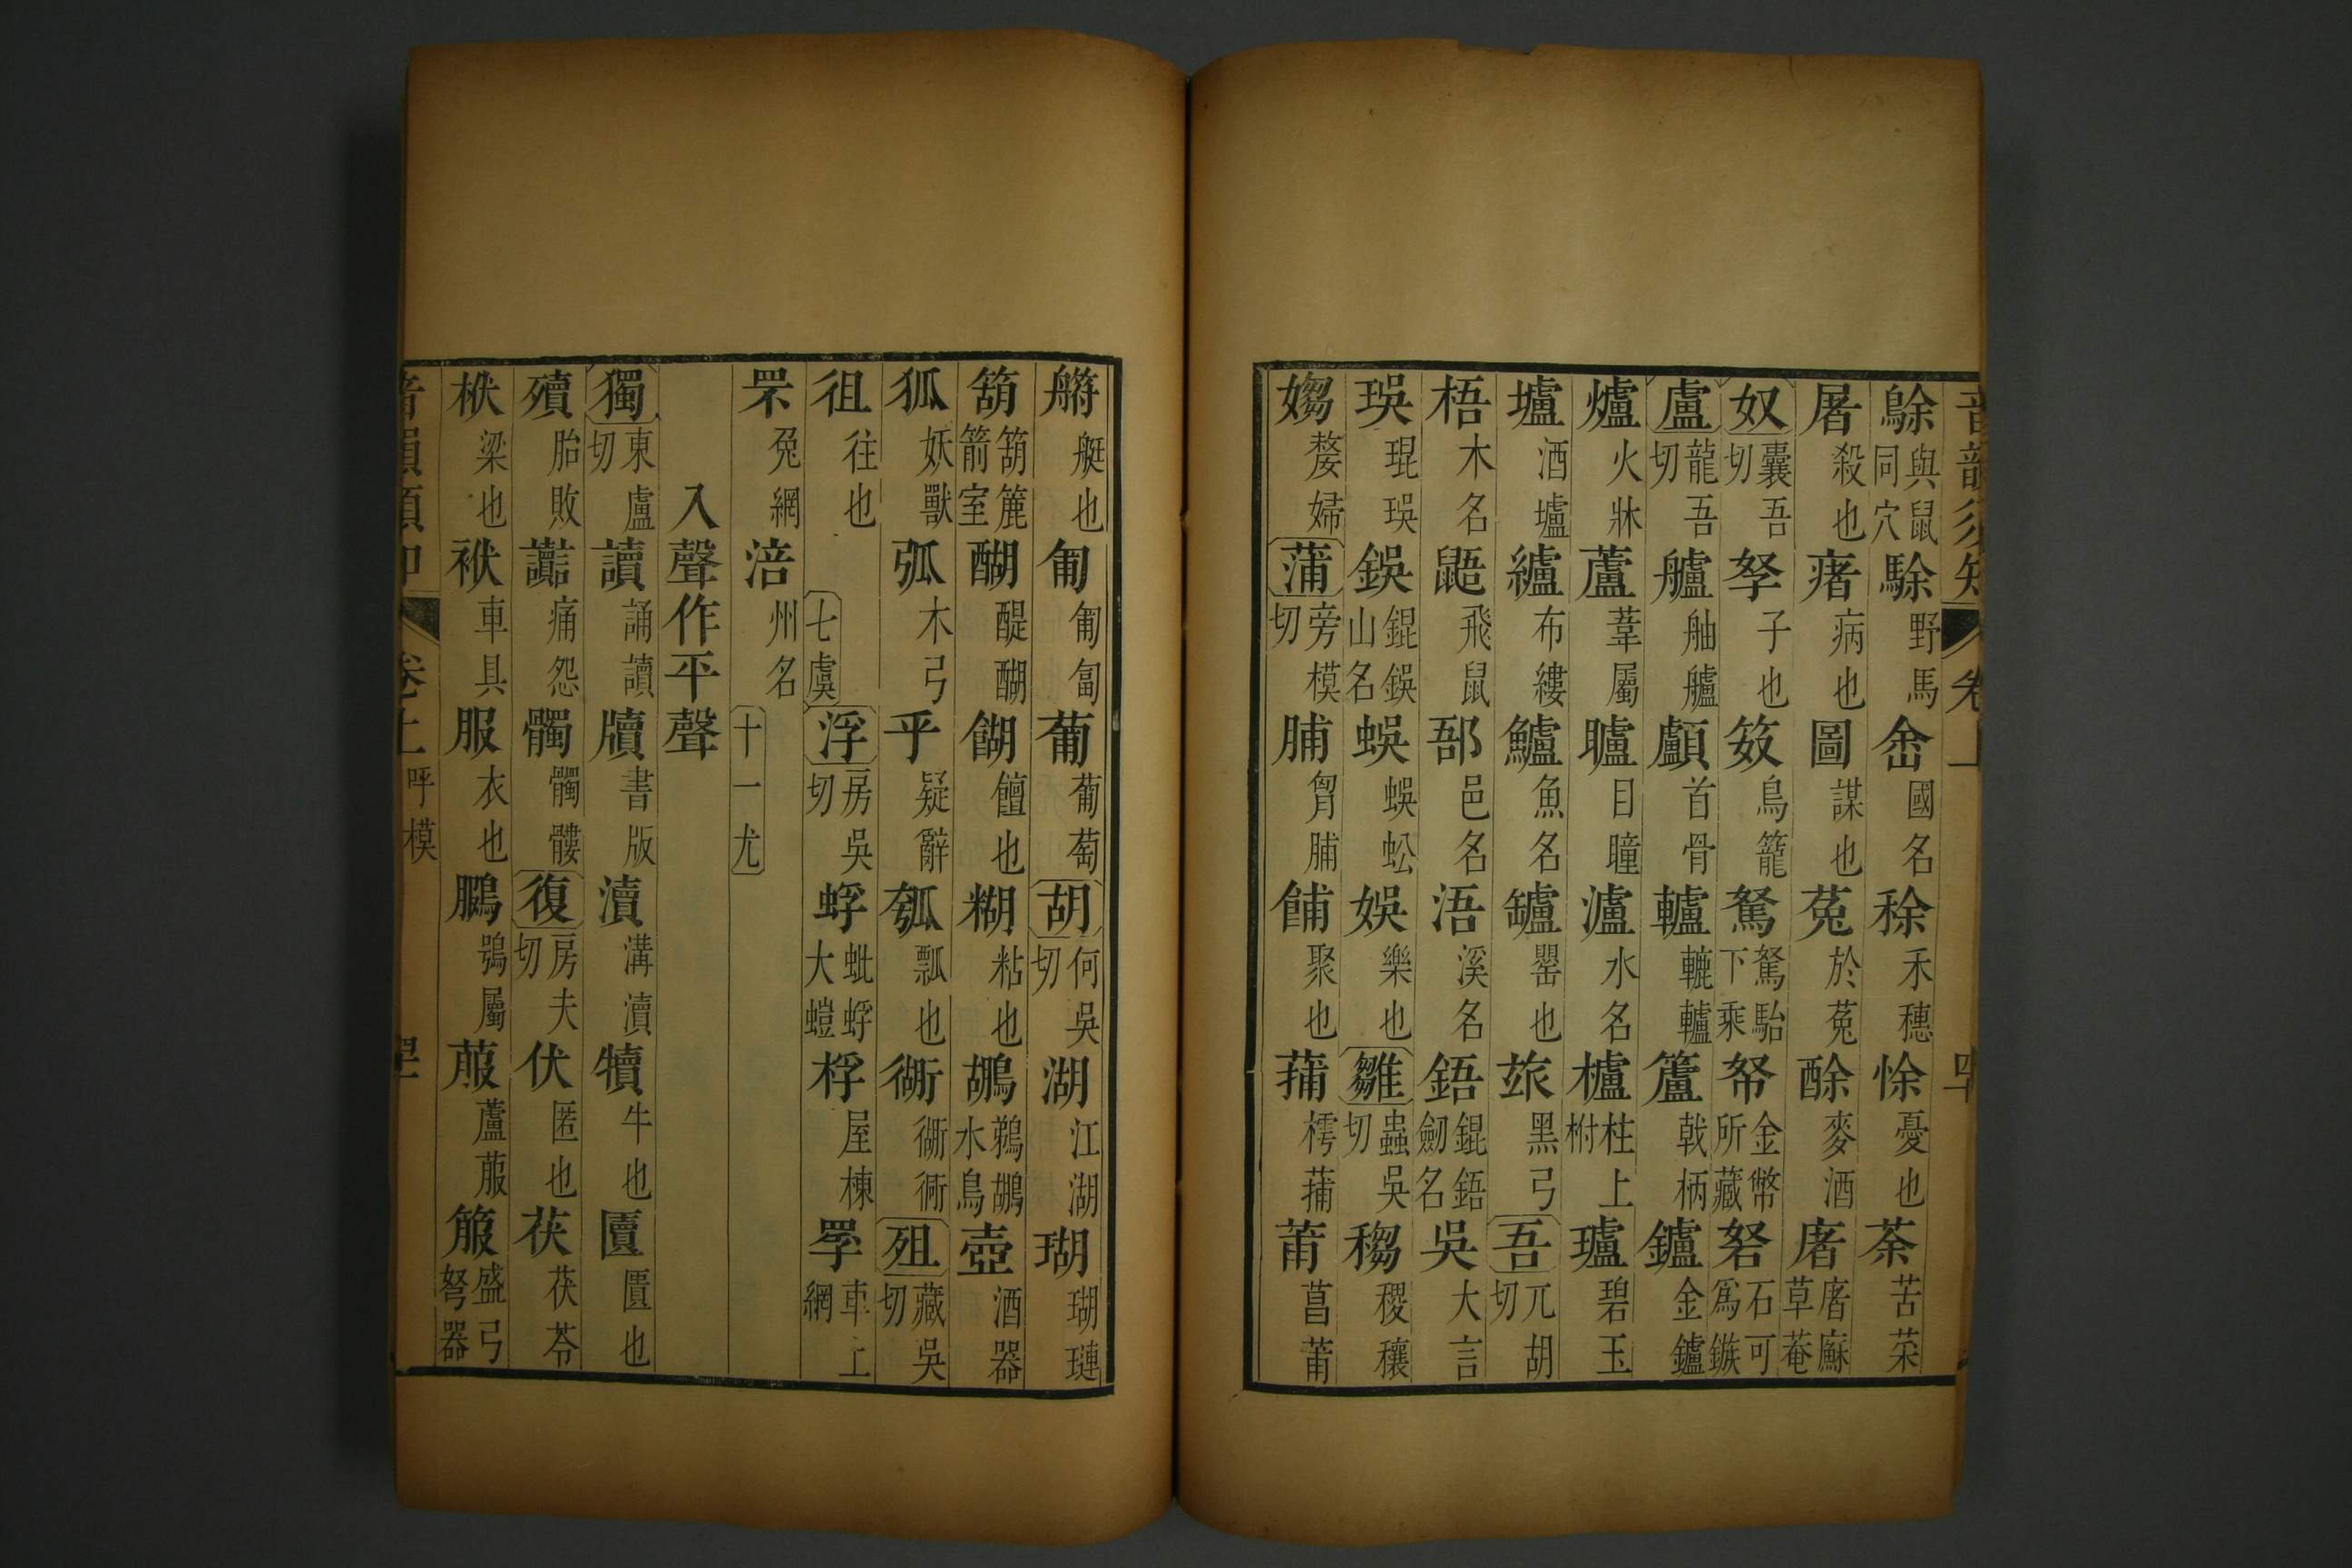 音韻須知 卷上
鵌與鼠同穴 駼野馬 峹國名 稌禾穗 悇憂也 荼苦菜
屠殺也 瘏病也 圖謀也 菟於菟 酴麥酒 廜廜㢝草菴
奴囊吾切 孥子也 笯鳥籠 駑駑駘下乘 帑金幣所藏 砮石可爲鏃
盧龍吾切 艫舳艫 顱首骨 轤轆轤 籚戟柄 鑪金鑪
爐火牀 蘆葦屬 矑目瞳 瀘水名 櫨柱上柎 瓐碧玉
壚酒壚 纑布縷 鱸魚名 罏罌也 玈黑弓 吾元胡切
梧木名 鼯飛鼠 郚邑名 浯溪名 鋙錕鋙劒名 吳大言
珸琨珸 鋘錕鋘山名 蜈蜈蚣 娛樂也 雛蟲吳切 穭稷穰
媰嫠婦 蒲旁模切 脯胷脯 餔聚也 蒱樗蒱 莆菖莆
艜艇也 匍匍匐 葡葡萄 胡何吳切 湖江湖 瑚瑚璉
箶箶簏箭室 醐醍醐 餬饘也 糊粘也 鶘鵜鶘水鳥 壺酒器
狐妖獸 弧木弓 乎疑辭 瓠瓢也 衚衚衕 殂藏吳切
徂往也 七虞 浮房吳切 蜉蚍蜉大螘 桴屋棟 罦車上網
罘兔網 涪州名 十一尤
入聲作平聲
獨東盧切 讀誦讀 牘書版 瀆溝瀆 犢牛也 匵匱也
殰胎敗 讟痛怨 髑髑髏 復房夫切 伏匿也 茯茯苓
栿梁也 袱車具 服衣也 鵩鴞屬 菔蘆菔 箙盛弓弩器
音韻須知 卷上 呼模